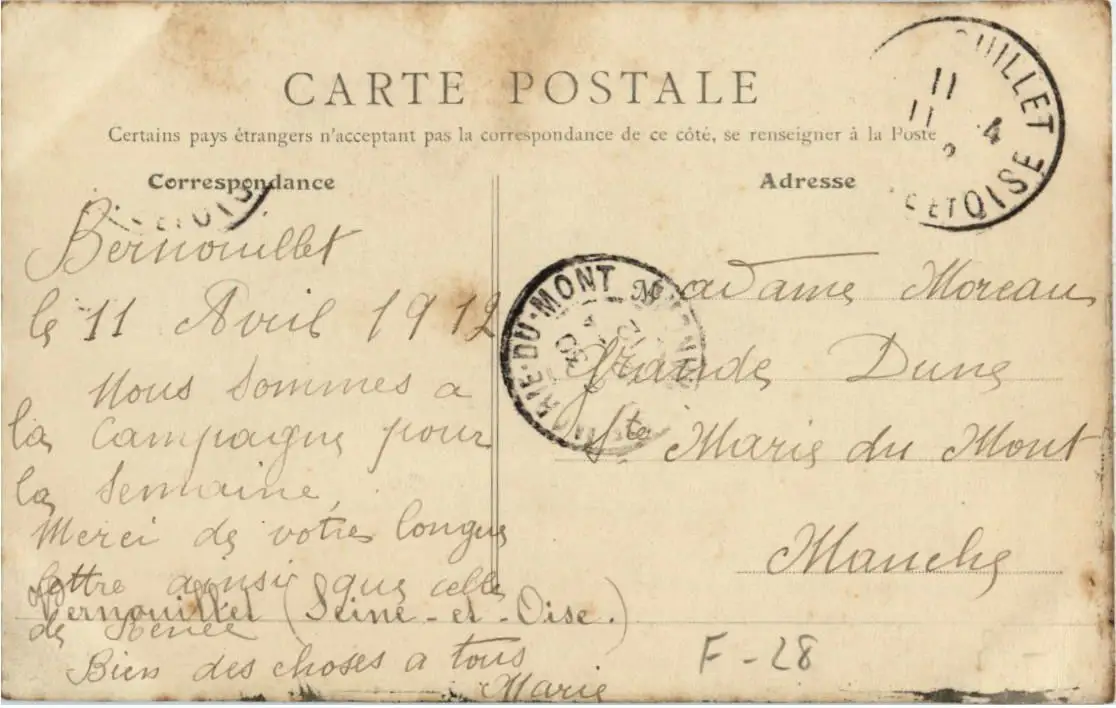 CARTE POSTALE
Certains pays étrangers n'acceptant pas la correspondance de ce côté, se renseigner à la Poste
Correspondance
Bernouillet
le 11 Avril 1912
Nous sommes a
la Campagne pour
la semaine,
Merci de votre longue
lettre ainsi que celle
de Renée
Bien des choses a tous
Marie
Vernouillet (Seine-et-Oise.)
Adresse
Madame Moreau
Grande Dune
Ste Marie du Mont
Manche
F-28
OUILLET
11
11 4
ET OISE
ET OIS
RIE-DU-MONT MANCHE